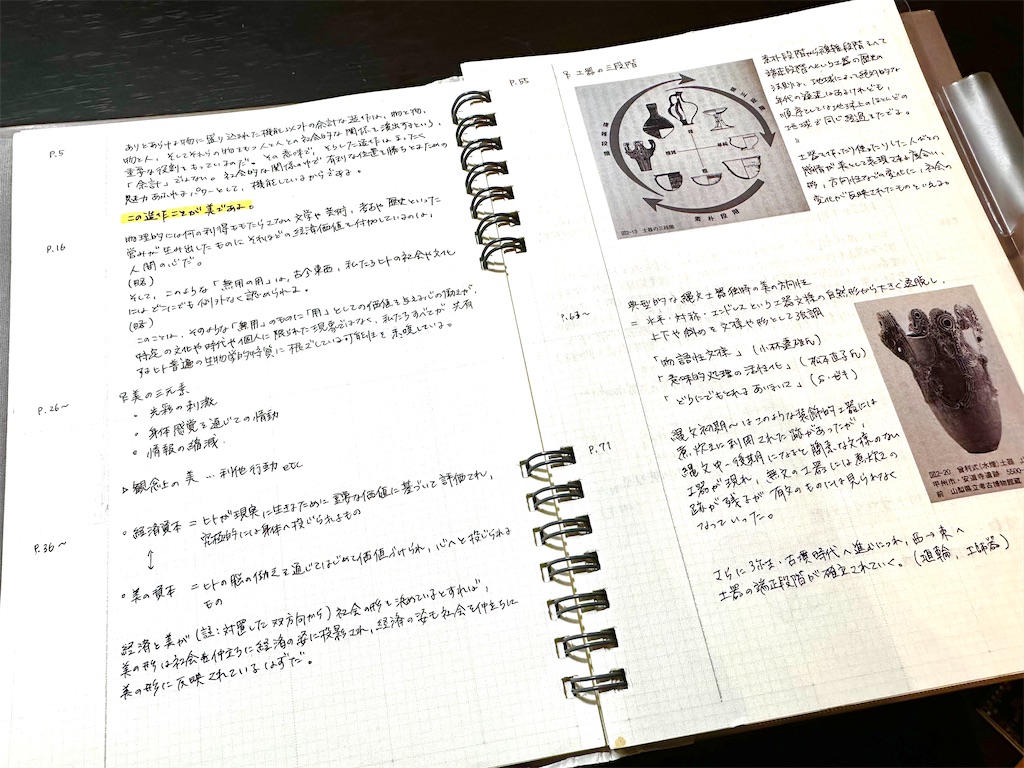 P.5
ありとあらゆる物に盛り込まれた機能以外の余計な造作は、物と物、
物と人、そしてそれらの物をもつ人と人との社会的な関係を演出するという、
重要な役割をもっているのだ。その意味で、そうした造作は、まったく
「余計」ではない。社会的な関係の中で有利な位置を勝ちとるための
魅力あふれるパワーとして、機能しているからである。
この造作こそが美である。
P.16
物理的には何の利得ももたらさない文学や芸術、考古や歴史といった
営みが生み出したものにそれほどの経済価値を付加しているのは、
人間の心だ。
(略)
そして、このような「無用の用」は、古今東西、私たちヒトの社会や文化
にはどこにでも何気なく認められる。
(略)
このことは、そのような「無用」のものに「用」としての価値を与える心の働きが、
特定の文化や時代や個人に限られた現象ではなく、私たちすべてが共有
するヒト普遍の生物学的特質に根ざしている可能性を示唆している。
P.26~
美の三元素
• 光彩の刺激
• 身体感覚を通じての情動
• 情報の縮減
▷観念上の美 … 利他行動 etc
P.36~
• 経済資本 = ヒトが現実に生きるために重要な価値に基づいて評価され、
究極的には身体へ投じられるもの
↕
• 美の資本 = ヒトの脳の働きを通じてはじめて価値づけられ、心へと投じられる
もの
経済と美が(註:対置した双方向から)社会の形を決めているとすれば、
美の形は社会を仲立ちに経済の姿に投影され、経済の姿も社会を仲立ちに
美の形に反映されているはずだ。
P.55
土器の三段階
複雑段階
第三段階
素朴段階
図2-13 土器の三段階
素朴段階から複雑段階をへて
端正段階へという土器の歴史の
法則は、地域によって絶対的な
年代の遅速はあるけれども、
順序としては地球上のほとんどの
地域で同じ経過をたどる。
土器を作ったり使ったりした人々の
感情が美として表現される度合い、
的、方向性などの変化に、社会の
変化が反映されたものといえる。
P.63~
典型的な縄文土器独特の美の方向性
= 水平・対称・エンドレスという土器文様の自然形から大きく逸脱し、
上下や斜めを文様や形として強調
「物語性文様」(小林達雄氏)
「意味的処理の活性化」(松本直子氏)
「どちらにでもとれるあいまいさ」(S・ゼキ)
P.71
縄文初期~はこのような装飾的土器には
煮炊きに利用された跡があったが、
縄文中~後期になると簡素な文様のない
土器が現れ、無文の土器には煮炊の
跡が残るが有文のものには見られなく
なっていった。
さらに弥生・古墳時代へ進むにつれ、西→東へ
土器の端正段階が確立されていく。(埴輪、土師器)
図2-20 曽利式(水煙)土器
甲州市・安道寺遺跡 5500~
前 山梨県立考古博物館蔵